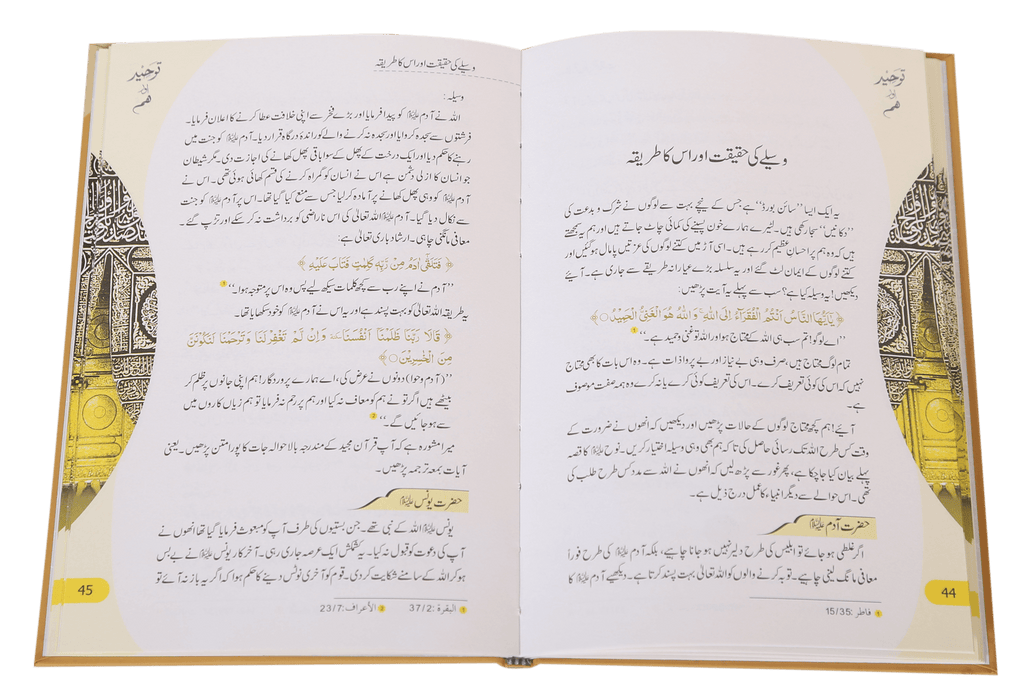 توحید
اور
ہم
وسیلے کی حقیقت اور اس کا طریقہ
یہ ایک ایسا ’’سائن بورڈ‘‘ ہے جس کے نیچے بہت سے لوگوں نے شرک و بدعت کی
’’دکانیں‘‘ سجا رکھی ہیں۔ لٹیرے ہمارے خون پسینے کی کمائی چاٹ جاتے ہیں اور ہم یہ سمجھتے
ہیں کہ وہ ہم پر احسانِ عظیم کر رہے ہیں۔ اسی آڑ میں کتنے لوگوں کی عزتیں پامال ہو گئیں اور
کتنے لوگوں کے ایمان لٹ گئے اور یہ سلسلہ بڑے عیارانہ طریقے سے جاری ہے۔ آئیے
دیکھیں! یہ وسیلہ کیا ہے؟ سب سے پہلے یہ آیت پڑھیں:
﴿ يٰۤاَيُّهَا النَّاسُ اَنْتُمُ الْفُقَرَآءُ اِلَى اللّٰهِ ۚ وَاللّٰهُ هُوَ الْغَنِيُّ الْحَمِيْدُ ○ ﴾
’’اے لوگو! تم سب ہی اللہ کے محتاج ہو اور اللہ تو غنی و حمید ہے۔‘‘ ❶
تمام لوگ محتاج ہیں، صرف وہی بے نیاز اور بے پروا ذات ہے۔ وہ اس بات کا بھی محتاج
نہیں کہ اس کی کوئی تعریف کرے۔ اس کی تعریف کوئی کرے یا نہ کرے وہ ہمہ صفت موصوف
ہے۔
آیئے! ہم کچھ محتاج لوگوں کے حالات پڑھیں اور دیکھیں کہ انھوں نے ضرورت کے
وقت کس طرح اللہ تک رسائی حاصل کی تاکہ ہم بھی وہی وسیلہ اختیار کریں۔ نوح علیہ السلام کا قصہ
پہلے بیان کیا جا چکا ہے، پھر غور سے پڑھ لیں کہ انھوں نے اللہ سے مدد کس طرح طلب کی
تھی۔ اس حوالے سے دیگر انبیاء کا عمل درج ذیل ہے۔
حضرت آدم علیہ السلام
اگر غلطی ہو جائے تو ابلیس کی طرح دلیر نہیں ہو جانا چاہیے، بلکہ آدم علیہ السلام کی طرح فوراً
معافی مانگ لینی چاہیے۔ توبہ کرنے والوں کو اللہ تعالیٰ بہت پسند کرتا ہے۔ دیکھیے آدم علیہ السلام کا
❶ فاطر :15/35
44
توحید
اور
ہم
وسیلے کی حقیقت اور اس کا طریقہ
وسیلہ:
اللہ نے آدم علیہ السلام کو پیدا فرمایا اور بڑے فخر سے اپنی خلافت عطا کرنے کا اعلان فرمایا۔
فرشتوں سے سجدہ کروایا اور سجدہ نہ کرنے والے کو راندۂ درگاہ قرار دیا۔ آدم علیہ السلام کو جنت میں
رہنے کا حکم دیا اور ایک درخت کے پھل کے سوا باقی پھل کھانے کی اجازت دی۔ مگر شیطان
جو انسان کا ازلی دشمن ہے اس نے انسان کو گمراہ کرنے کی قسم کھائی ہوئی تھی۔ اس نے
آدم علیہ السلام کو وہی پھل کھانے پر آمادہ کر لیا جس سے منع کیا گیا تھا۔ اس پر آدم علیہ السلام کو جنت
سے نکال دیا گیا۔ آدم علیہ السلام اللہ تعالیٰ کی اس ناراضی کو برداشت نہ کر سکے اور تڑپ گئے۔
معافی مانگنی چاہی۔ ارشاد باری تعالیٰ ہے:
﴿ فَتَلَقّٰۤى اٰدَمُ مِنْ رَّبِّهٖ كَلِمٰتٍ فَتَابَ عَلَيْهِ ﴾
’’آدم نے اپنے رب سے کچھ کلمات سیکھ لیے پس وہ اس پر متوجہ ہوا۔‘‘ ❶
یہ طریقہ اللہ تعالیٰ کو بہت پسند ہے اور یہ اس نے آدم علیہ السلام کو خود سکھایا تھا۔
﴿ قَالَا رَبَّنَا ظَلَمْنَاۤ اَنْفُسَنَا ۫ وَاِنْ لَّمْ تَغْفِرْ لَنَا وَتَرْحَمْنَا لَنَكُوْنَنَّ
مِنَ الْخٰسِرِيْنَ ○ ﴾
’’(آدم و حوا) دونوں نے عرض کی، اے ہمارے پروردگار! ہم اپنی جانوں پر ظلم کر
بیٹھے ہیں اگر تو نے ہم کو معاف نہ کیا اور ہم پر رحم نہ فرمایا تو ہم زیاں کاروں میں
سے ہو جائیں گے۔‘‘ ❷
میرا مشورہ ہے کہ آپ قرآن مجید کے مندرجہ بالا حوالہ جات کا پورا متن پڑھیں۔ یعنی
آیات بمعہ ترجمہ پڑھیں۔
حضرت یونس علیہ السلام
یونس علیہ السلام اللہ کے نبی تھے۔ جن بستیوں کی طرف آپ کو مبعوث فرمایا گیا تھا انھوں نے
آپ کی دعوت کو قبول نہ کیا۔ یہ کشمکش ایک عرصہ جاری رہی۔ آخر کار یونس علیہ السلام نے بے بس
ہو کر اللہ کے سامنے شکایت کر دی۔ قوم کو آخری نوٹس دینے کا حکم ہوا کہ اگر یہ باز نہ آئے تو
❶ البقرة :37/2 ❷ الأعراف :23/7
45